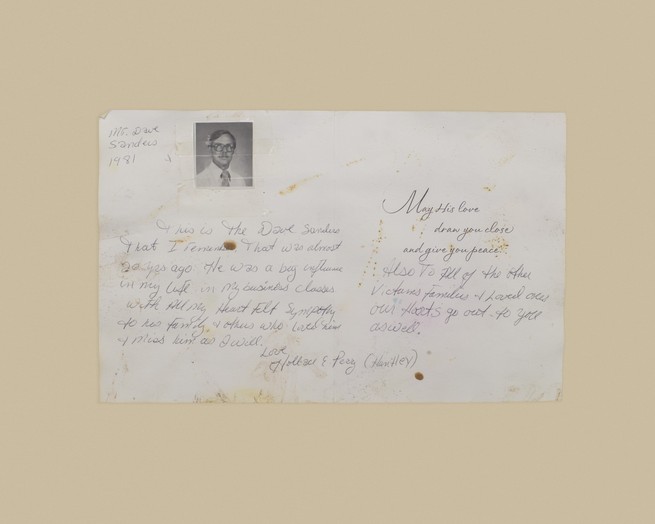 Mr. Dave
Sanders
1981
This is the Dave Sanders
That I remember That was almost
20 yrs ago. He was a big influence
in my life in my business classes
With All my Heart felt Sympothy
to his family & others who loves him
& miss him as I will.
Love
(Huntley)
May His love
draw you close
and give you peace.
Also To All of the other
Victoms families & Loved ones
our Hearts go out to you
as well.